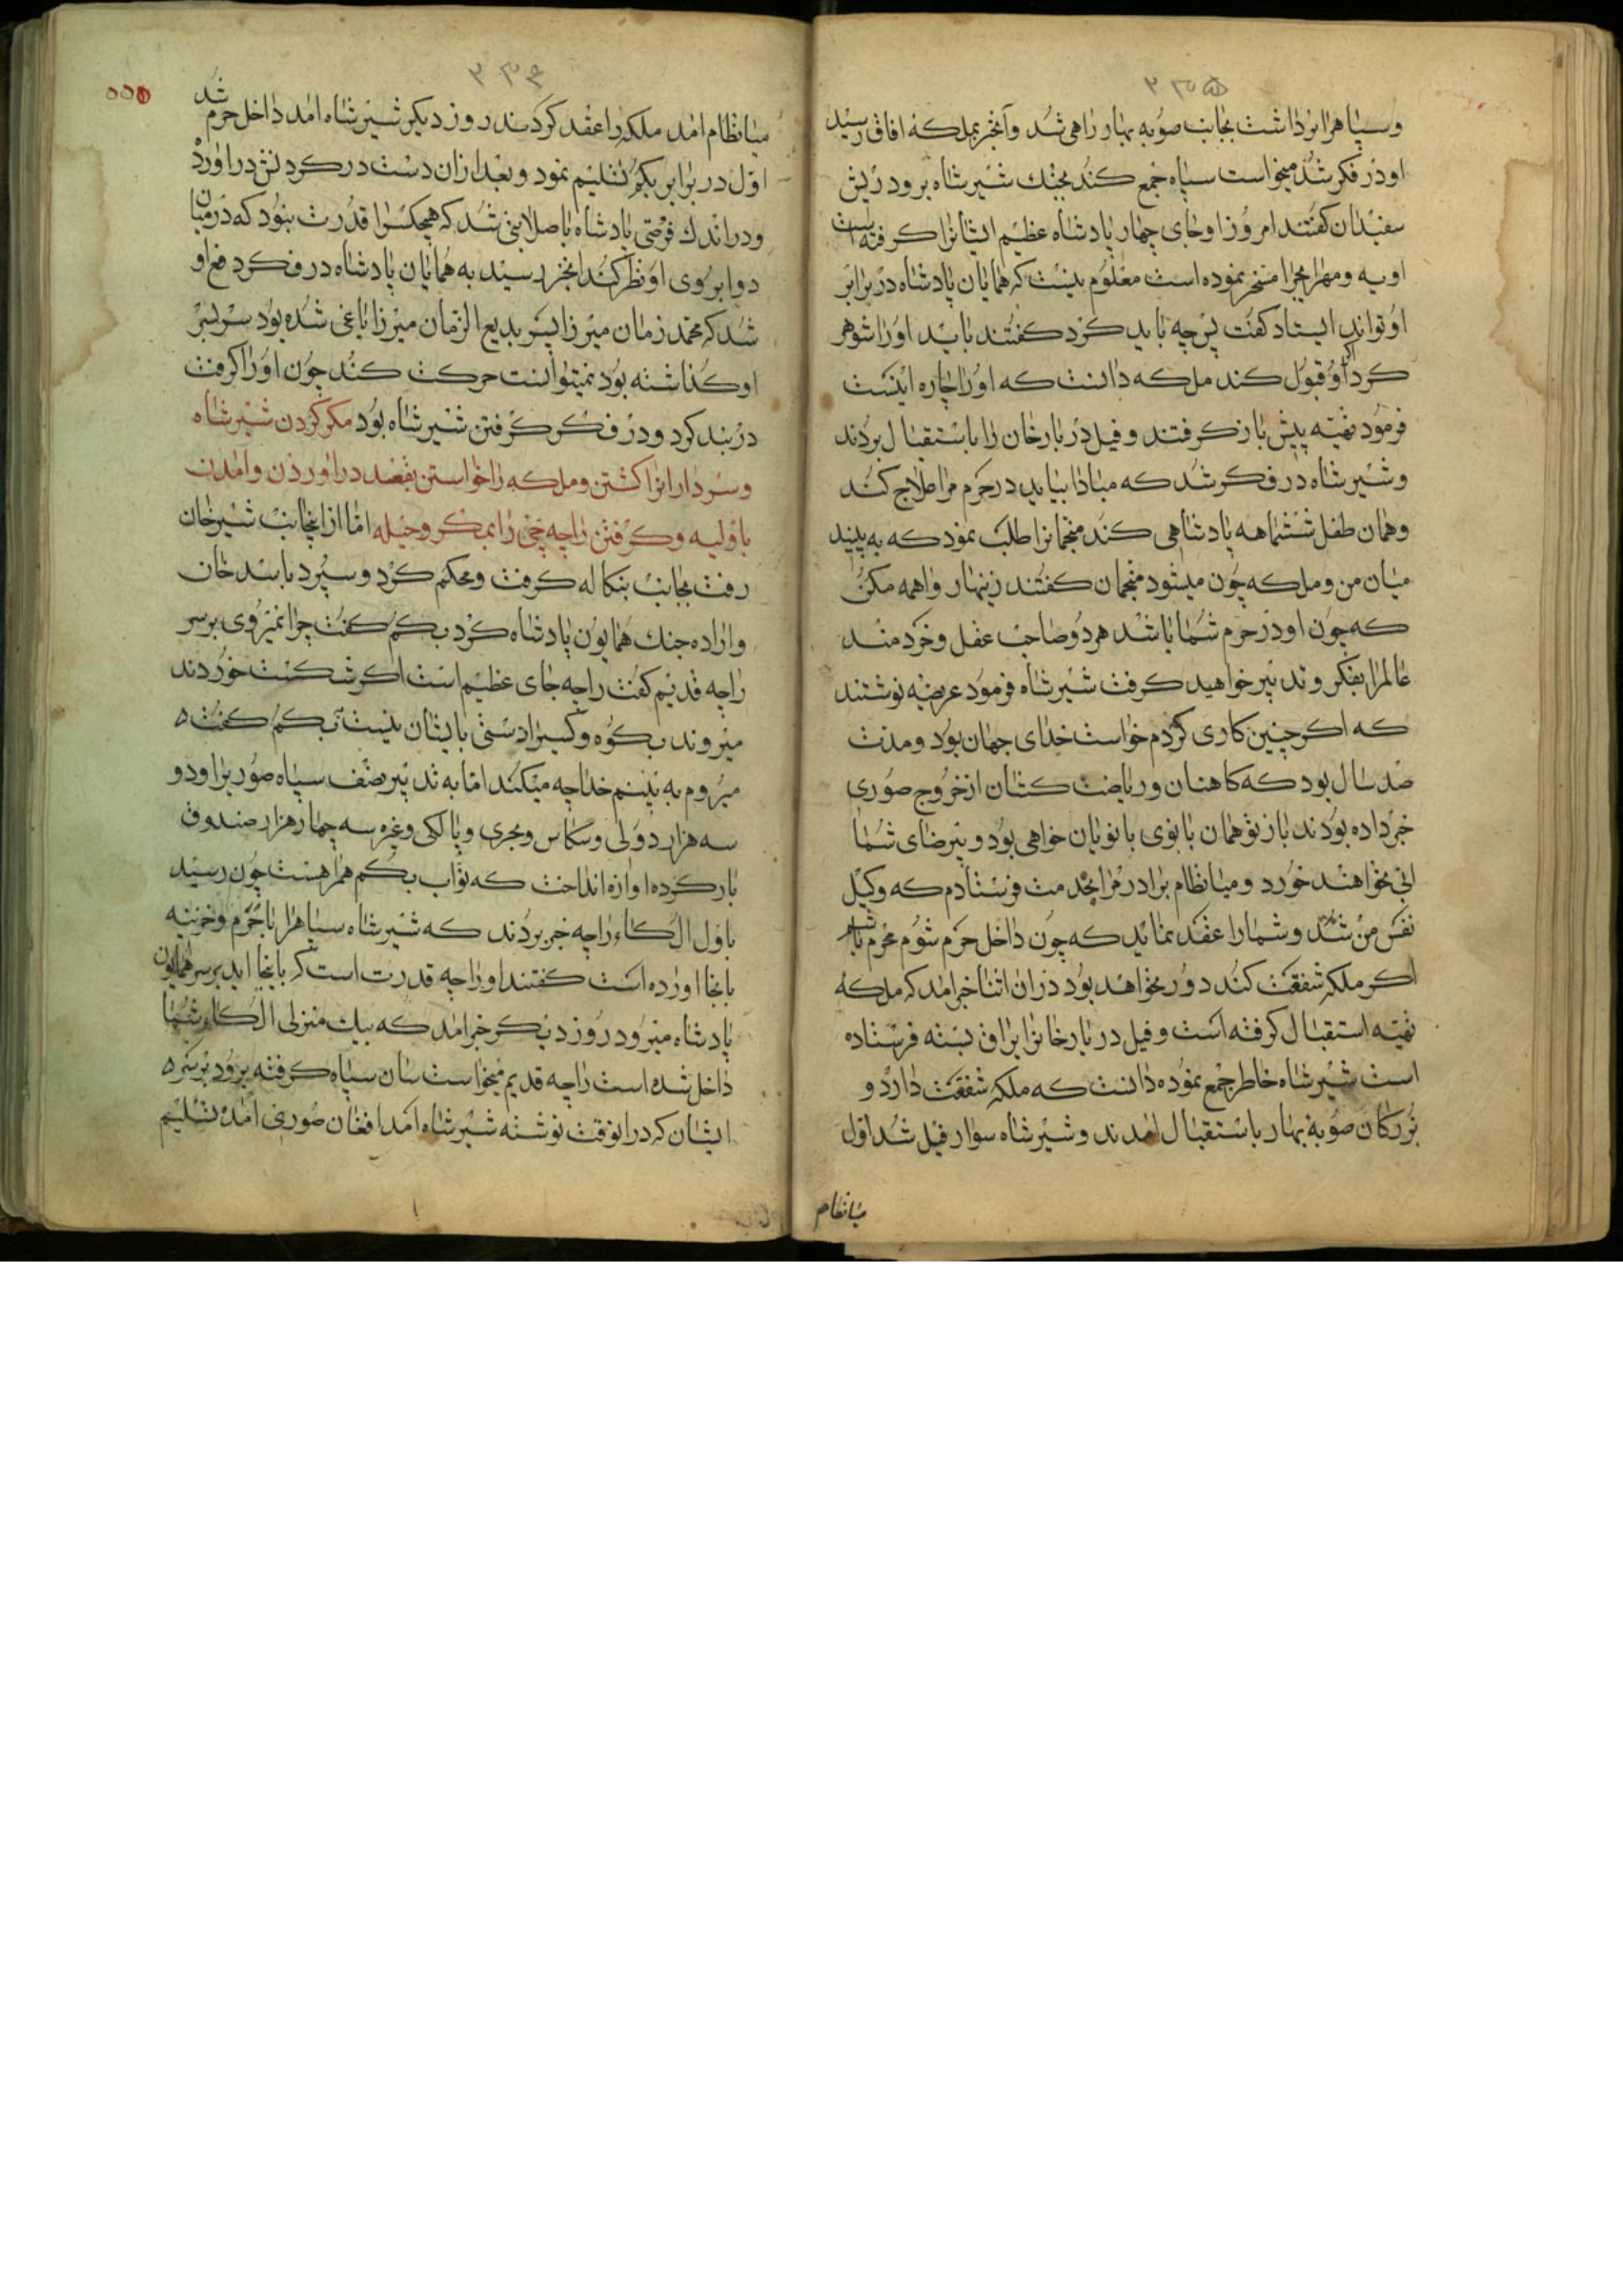 ۳۳۵
وسپاهرا برداشت بجانب صوبه بهار راهی شد و آنخبر بملکه افاق رسید
او در فکر شد میخواست سپاه جمع کند بجنک شیر شاه برود ریش
سفیدان کفتند امروز او جای چهار پادشاه عظیم ایشانرا کرفته است
اویه و را مسخر نموده است معلوم نیست که همایان پادشاه در برابر
او تواند ایستاد کفت پس چه باید کرد کفتند باید او را شوهر
کرد اکر او قبول کند ملکه دانست که او را چاره اینست
فرمود تهیه پیش باز کرفتند و فیل دربارخان را باستقبال بردند
و شیر شاه در فکر شد که مبادا بیاید در حرم مرا علاج کند
و همان طفل ششماهه پادشاهی کند منجمانرا طلب نمود که به بینید
میان من و ملکه چون میشود منجمان کفتند زینهار واهمه مکن
که چون او در حرم شما باشد هر دو صاحب عقل و خردمند
عالمرا بفکر و تدبیر خواهید کرفت شیر شاه فرمود عریضه نوشتند
که اکر چنین کاری کردم خواست خدای جهان بود و مدت
صد سال بود که کاهنان و ریاضت کشان از خروج صوری
خبر داده بودند باز تو همان بانوی بانویان خواهی بود و بیرضای شما
ابی نخواهند خورد و میانظام برادر مرا بخدمت فرستادم که وکیل
نفس من شد و شما را عقد نماید که چون داخل حرم شوم محرم باشد
اکر ملکه شفقت کند دور نخواهد بود در ان اثنا خبر امد که ملکه
تهیه استقبال کرفته است و فیل دربارخانرا یراق بسته فرستاده
است شیر شاه خاطر جمع نموده دانست که ملکه شفقت دارد و
بزرکان صوبه بهار باستقبال امدند و شیر شاه سوار فیل شد اول
میانظام
۳۳۶
میانظام امد ملکه را عقد کردند روز دیکر شیر شاه امد داخل حرم شد
اول در برابر بکم تسلیم نمود و بعد از ان دست در کردنش در اورد
و در اندک فرصتی پادشاه با صلابتی شد که هیچکسرا قدرت نبود که در میان
دو ابروی او نظر کند انخبر رسید به همایان پادشاه در فکر دفع او
شد که محمد زمان میرزا پسر بدیع الزمان میرزا یاغی شده بود سر بسر
او کذاشته بود نمیتوانست حرکت کند چون او را کرفت
در بند کرد و در فکر کرفتن شیر شاه بود مکر کردن شیر شاه
و سردارانرا کشتن و ملکه را خواستن بقصد در اوردن و امدن
باولیه و کرفتن راجه را بمکر و حیله اما از انجانب شیر خان
رفت بجانب بنکاله کرفت و محکم کرد و سپرد باسد خان
و اراده جنک همایون پادشاه کرد بکم کفت چرا نمیروی بر سر
راجه قدیم کفت راجه جای عظیم است اکر شکست خوردند
میروند بکوه و کسیرا دستی بایشان نیست بکم کفت
میروم به بینم خدا چه میکند اما به تدبیر نصف سپاه صوریرا و دو
سه هزار دولی و و مجری و پالکی و غیره سه چهار هزار صندوق
بار کرده اوازه انداخت که نواب بکم همراهست چون رسید
باول الکاء راجه خبر بردند که شیر شاه سپاهرا با حرم و خزینه
بانجا اورده است کفتند او را چه قدرت است که باینجا اید بر سر همایون
پادشاه میرود روز دیکر خبر امد که بیک منزلی الکاء شما
داخل شده است راجه قدیم میخواست سان سپاه کرفته برود بر سر
ایشان که در انوقت نوشته شیر شاه امد افغان صوری امده تسلیم